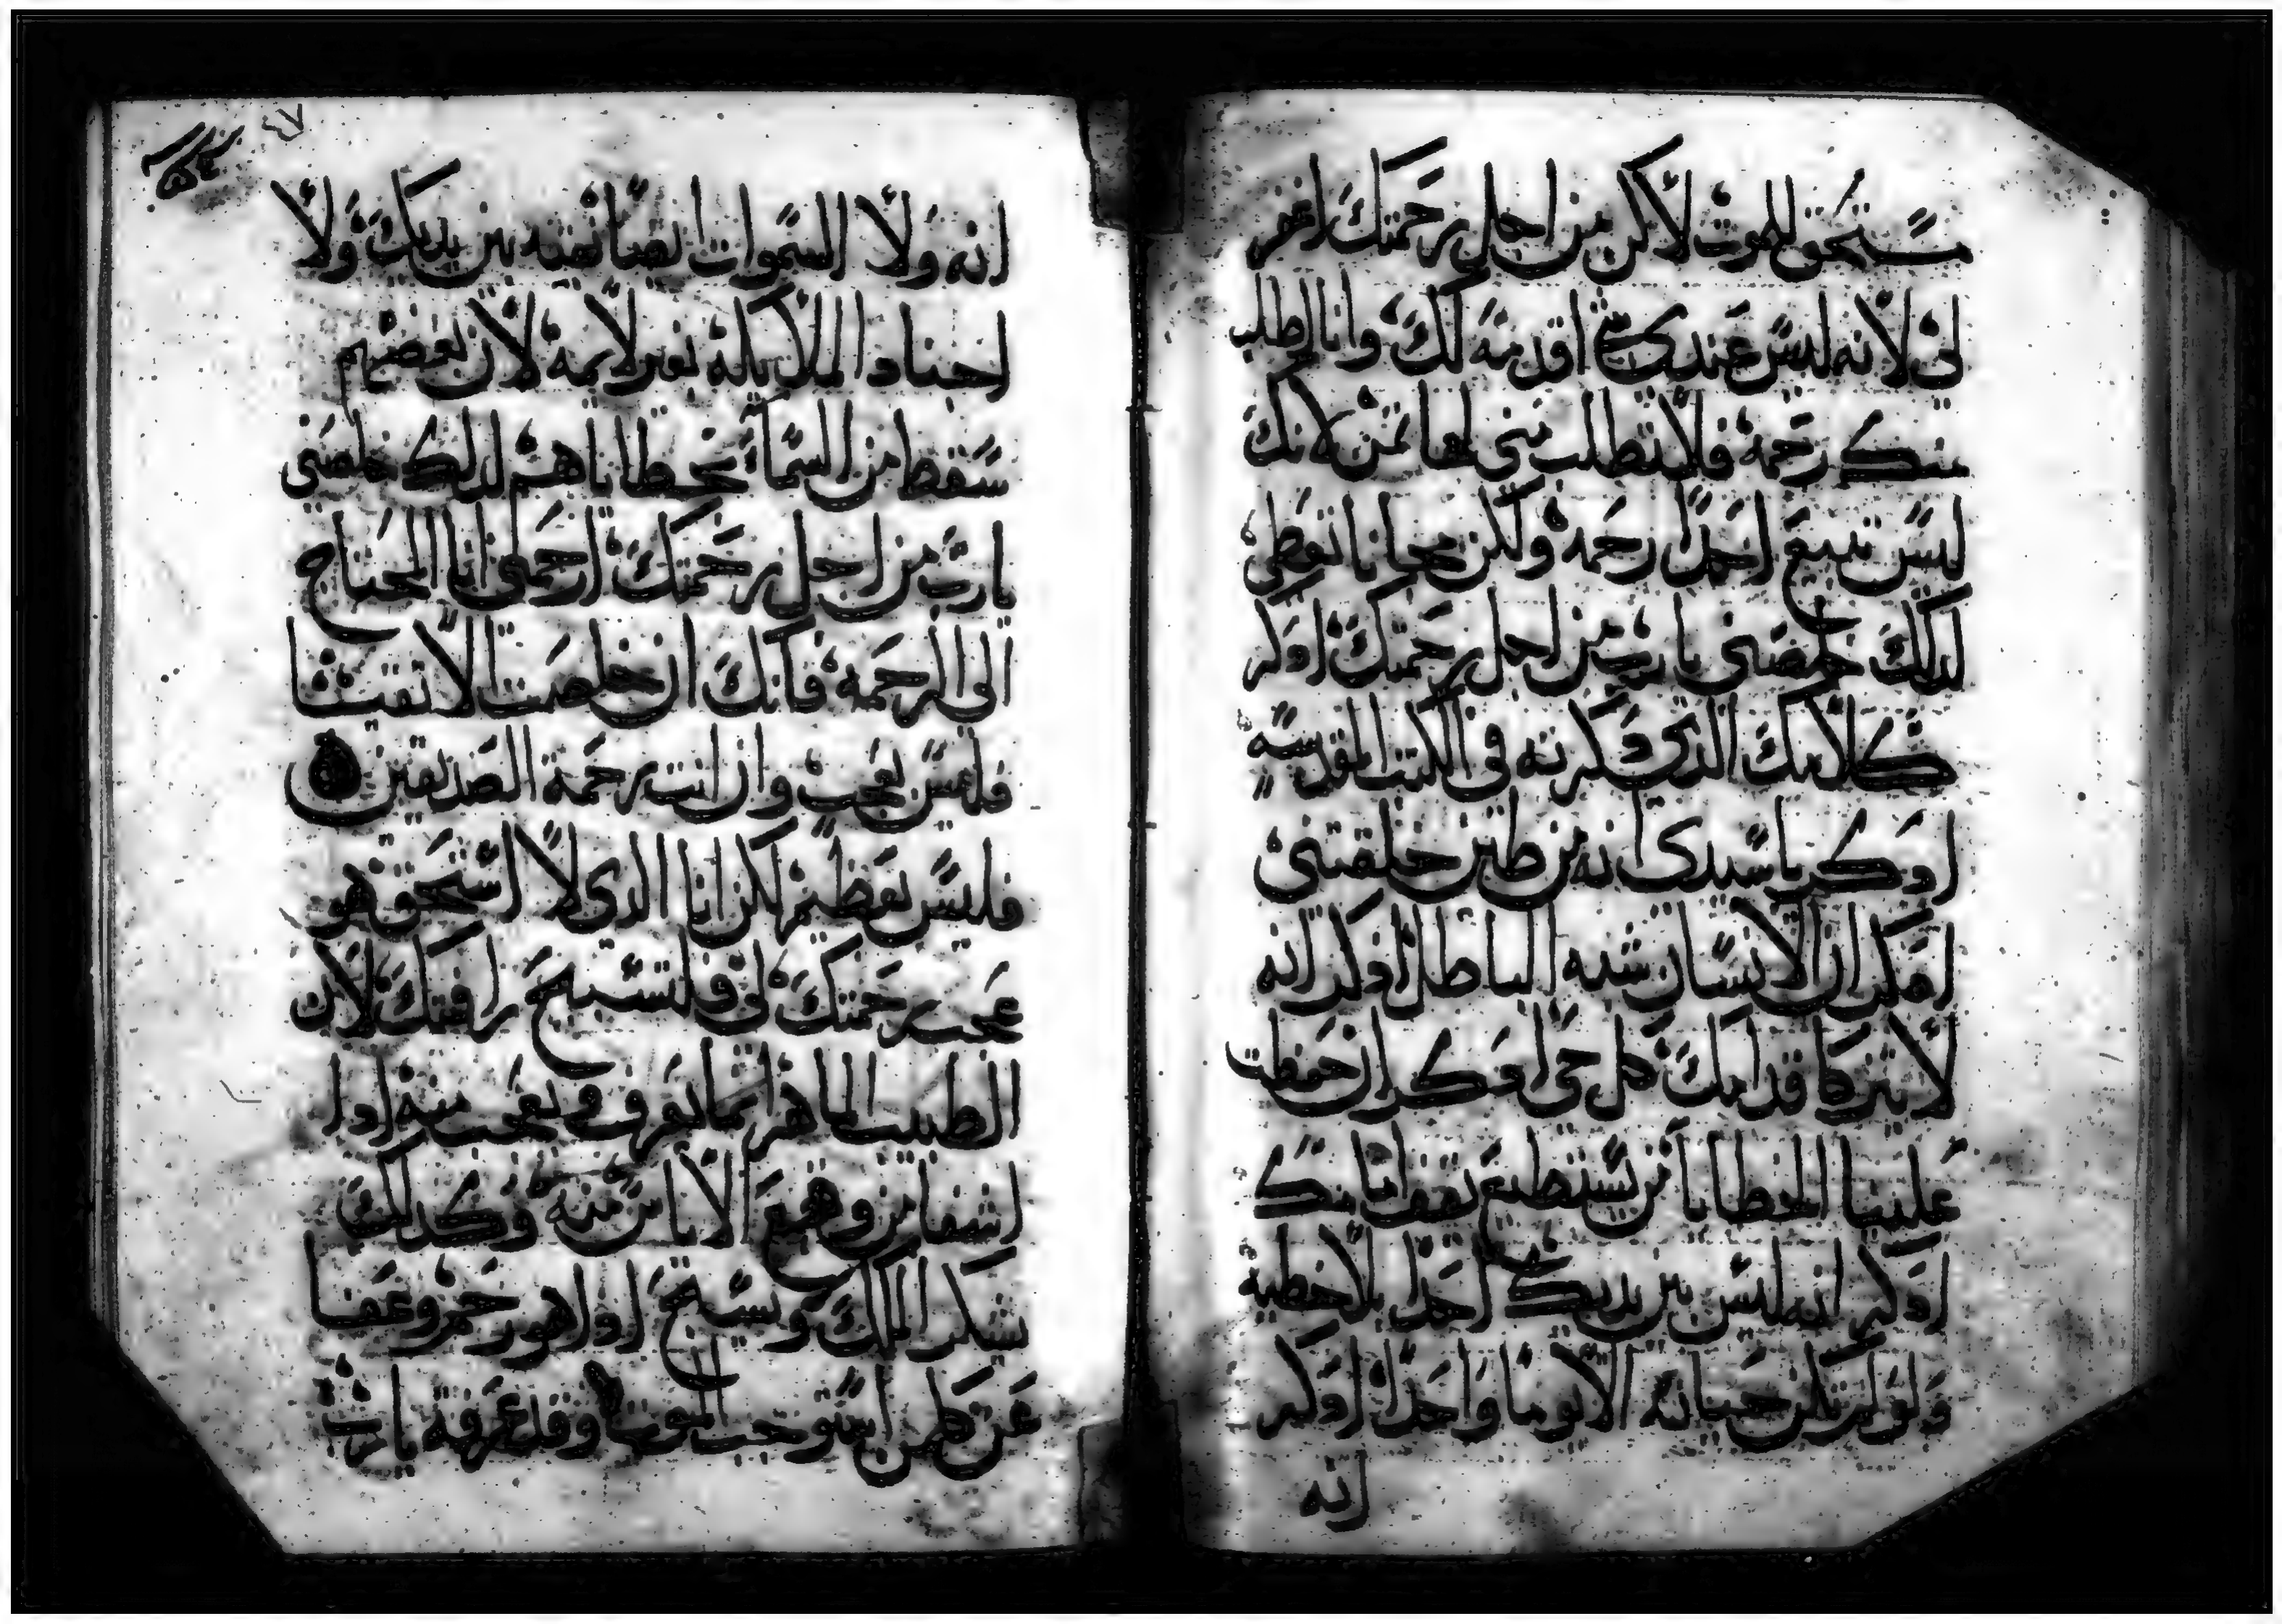 ستحق للموت لاكن من اجل رحمتك اغفر
لي لانه ليس عندي شي اقدمه لك وانا اطلب
منك رحمة فلا تطلب مني لها ثمن لانك
ليس تبيع احدًا رحمه ولكن مجانا تعطي
لدلك خلصني يارب من اجل رحمتك ادكر
كلامك الدي دكرته في الكتب المقدسه
ادكر يا سيدي انه من طين خلقتني
ادكر ان الانسان شبه الباطل ادكر انه
لا يتزكا قدامك كل حي ادكر ان حفظت
علينا الخطايا من يستطيع يقف امامك
ادكر انه ليس بين يديك احدا بلا خطيه
ولو لم تكن حياته الا يوما واحدًا ادكر
انه
٤٧
انه ولا السموات بصانقيه بين يديك ولا
اجناد الملايكه بغير لايمه لان بعضهم
سقط من السماء بخطاياهم لدلك خلصني
يارب من اجل رحمتك ارحمني انا المحتاج
الى الرحمه فانك ان خلصت الاتقيا
فليس بعجب وان انت رحمة الصديقين
فليس بعظيم لكن انا الدي لا استحق هو
عجب رحمتك لي فلتسبح رافتك لان
الطبيب الماهر انما يعرف ويعجب منه ادا
اشفا من وهيع الاياس منه وكدلك
شكر الملك ويسبح ادا هو رحم وعفا
عن كلمن استوجب الموت وقد عرفة يارب